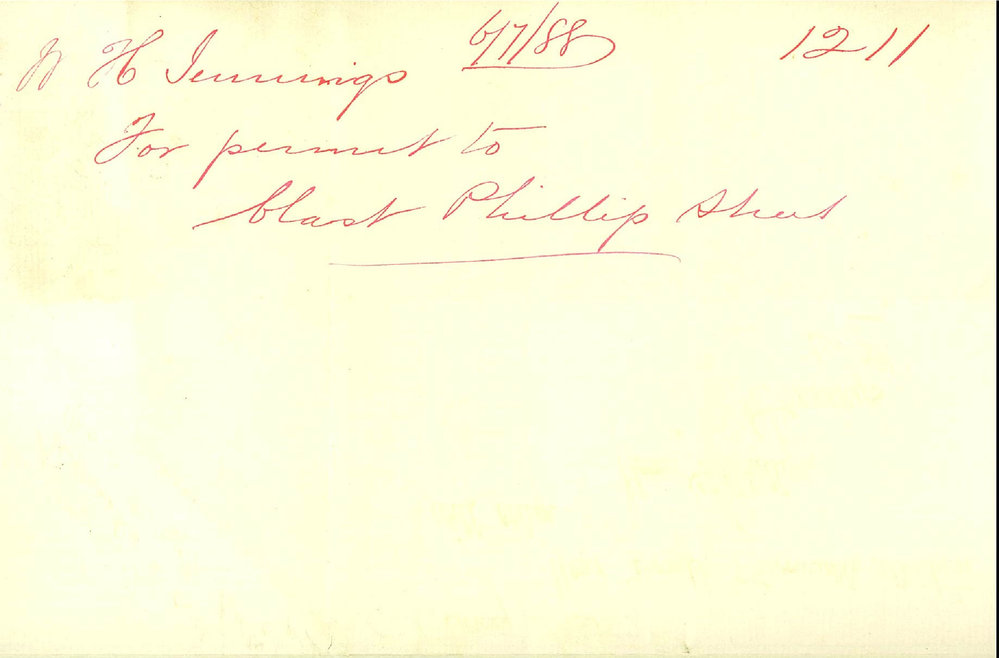 W H Jennings 6/7/88 1211
For permit to
blast Phillip Street